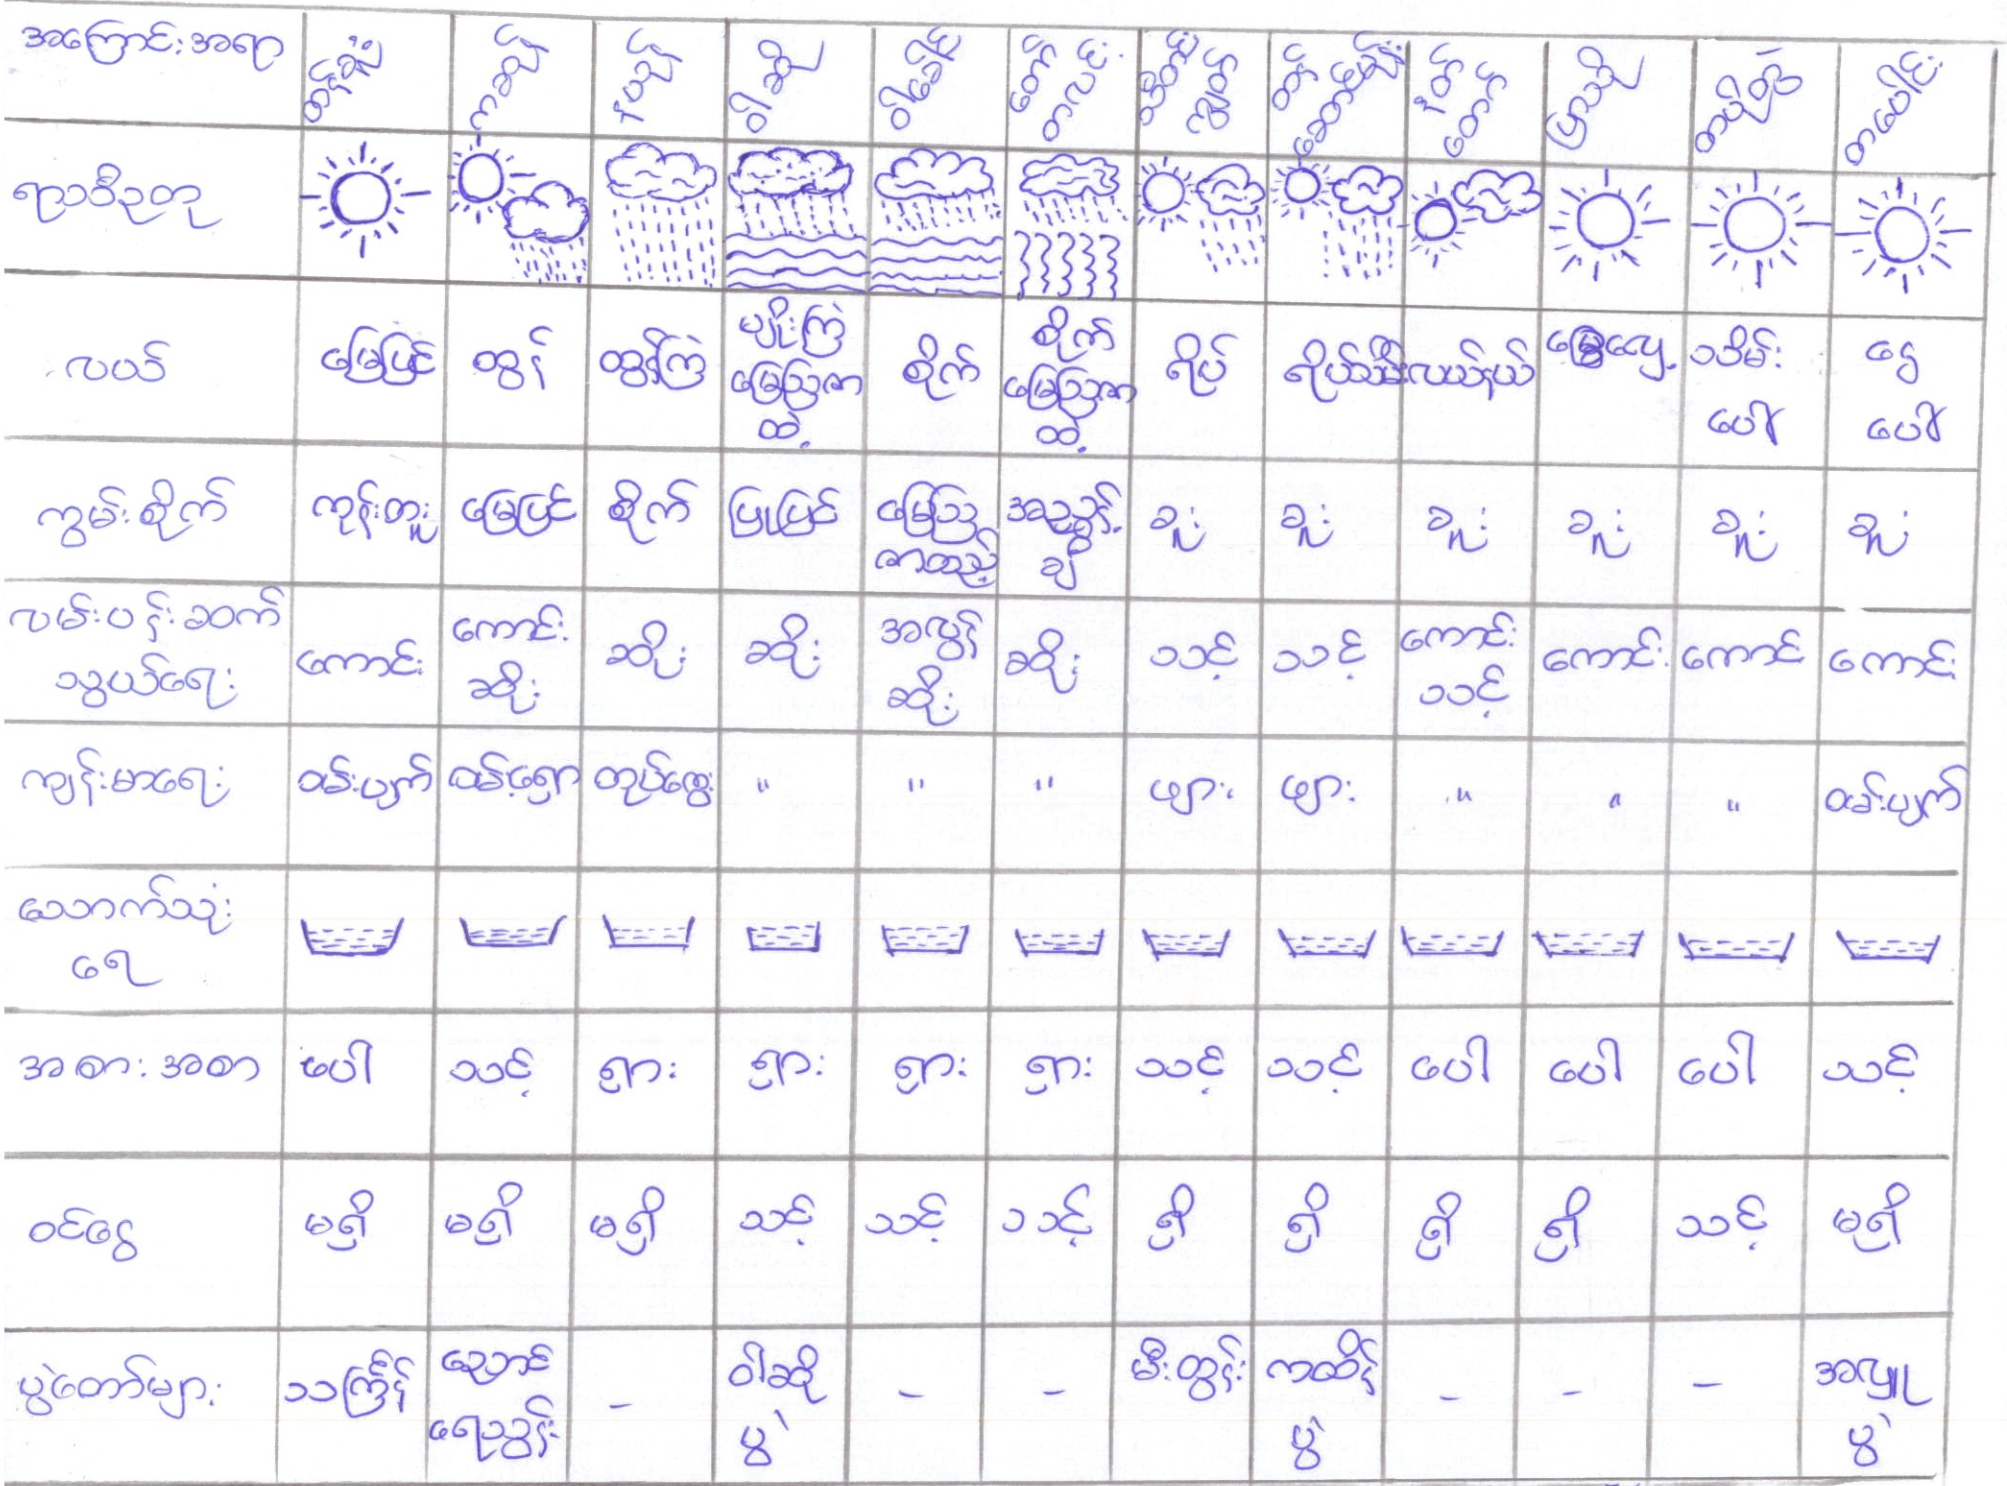 အကြောင်းအရာ တန်ခူး ကဆုန် နယုန် ဝါဆို ဝါခေါင် တော်သလင်း သီတင်းကျွတ် တန်ဆောင်မုန်း နတ်တော် ပြာသို တပို့တွဲ တပေါင်း
ရာသီဥတု
လယ် မြေပြင် ထွန် ထွန်ကြဲ ပျိုးကြဲ မြေဩဇာ ထဲ့ စိုက် စိုက် မြေဩဇာ ထဲ့ ရိပ် ရိုပ်သိမ်း လယ်နယ် မြေလှေ့ သိမ်း ပေါ် ငွေ ပေါ်
ကွမ်းစိုက် ကုန်းတူး မြေပြင် စိုက် ပြုပြင် မြေဩ ဇာထည့် အညွန့် ချိ ခူး ခူး ခူး ခူး ခူး ခူး
လမ်းပန်းဆက်
သွယ်ရေး ကောင်း ကောင်း ဆိုး ဆိုး ဆိုး အလွန် ဆိုး ဆိုး သင့် သင့် ကောင်း သင့် ကောင်း ကောင်း ကောင်း
ကျန်းမာရေး ဝမ်းပျက် ဝမ်းရှော တုပ်ကွေး " " " ဖျား ဖျား " " " ဝမ်းပျက်
သောက်သုံး
ရေ
အစားအစာ ပေါ သင့် ရှား ရှား ရှား ရှား သင့် သင့် ပေါ ပေါ ပေါ သင့်
ဝင်ငွေ မရှိ မရှိ မရှိ သင့် သင့် သင့် ရှိ ရှိ ရှိ ရှိ သင့် မရှိ
ပွဲတော်များ သင်္ကြန် ညောင် ရေသွန်း - ဝါဆို ပွဲ - - မီးထွန်း ကထိန် ပွဲ - - - အလှူ ပွဲ